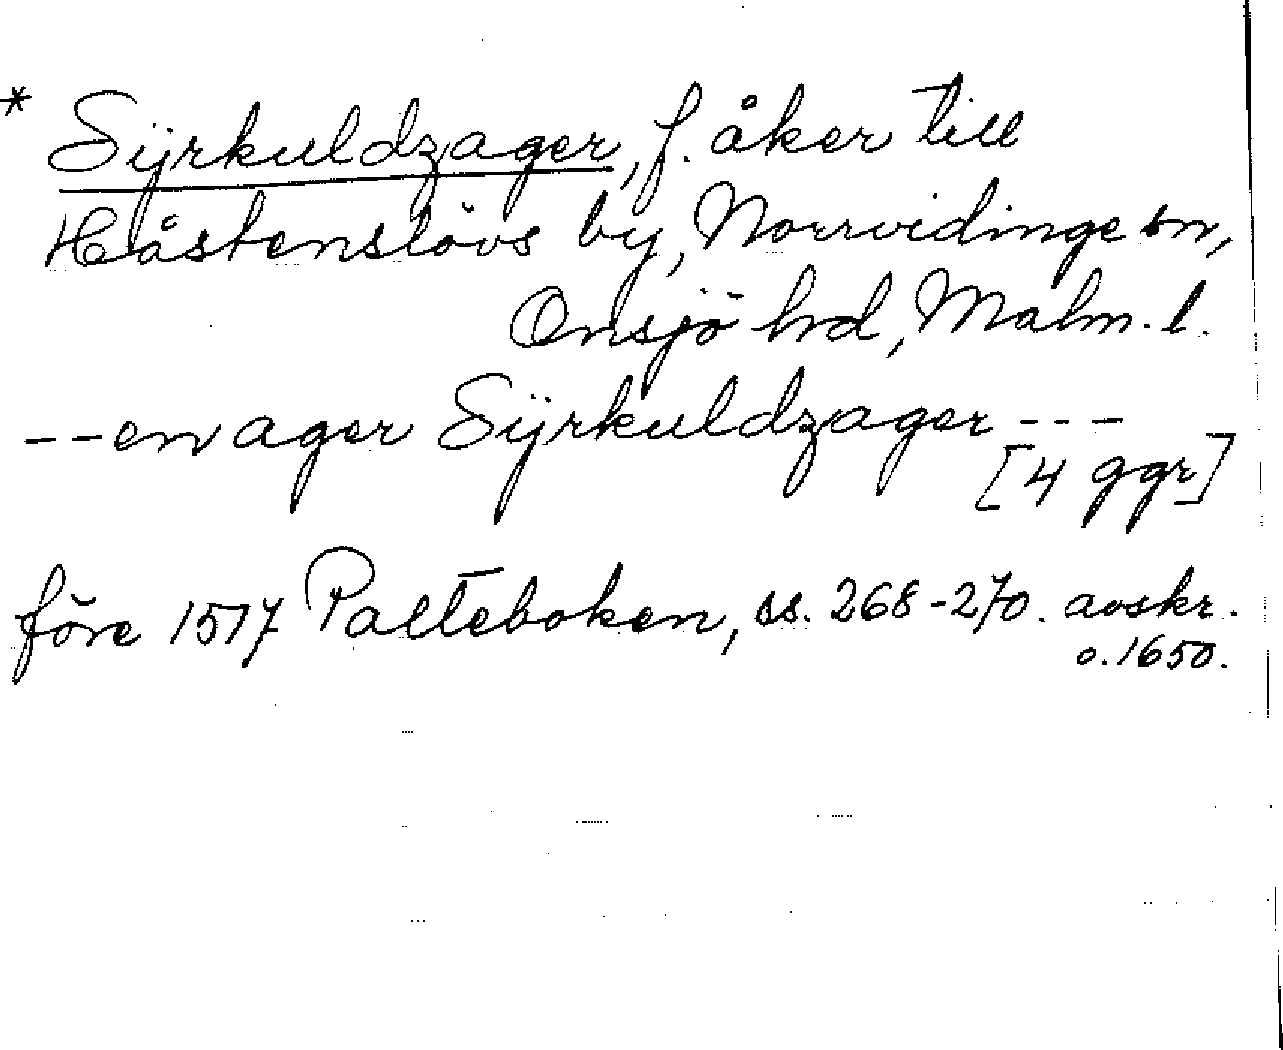 * Sÿrkuldzager, f. åker till
Håstenslövs by, Norrvidinge sn,
Onsjö hd, Malm. l.
-- en ager Sÿrkuldzager ---
[4 ggr]
före 1517 Palteboken, ss. 268-270. avskr.
o. 1650.